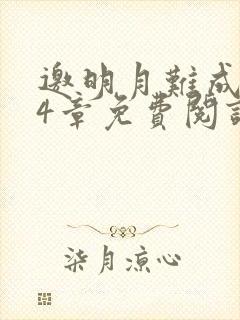 邀明月難成
4章免費閱讀
柒月涼心